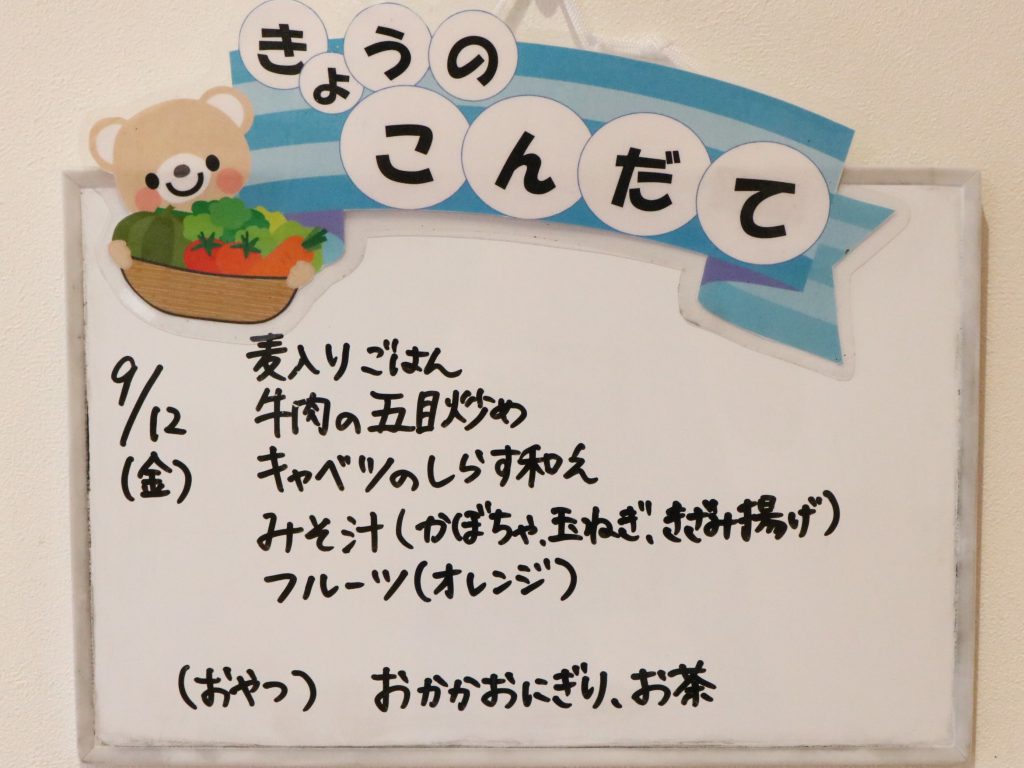 きょうの
こんだて
9/12
(金)
麦入りごはん
牛肉の五目炒め
キャベツのしらす和え
みそ汁(かぼちゃ、玉ねぎ、きざみ揚げ)
フルーツ(オレンジ)
(おやつ) おかかおにぎり、お茶